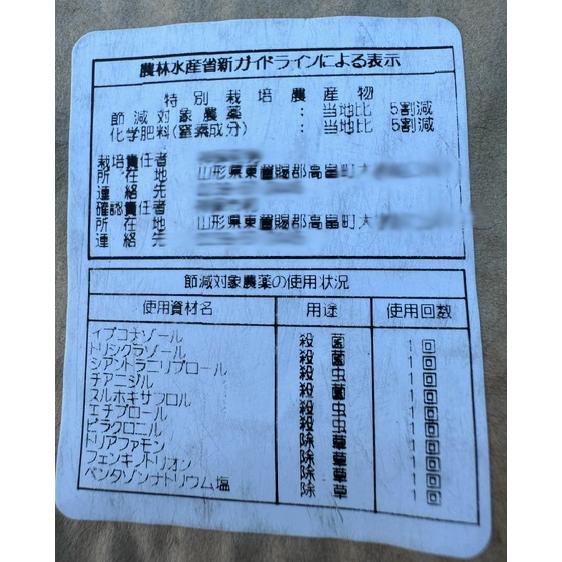 農林水産省新ガイドラインによる表示
特別栽培農産物
節減対象農薬 : 当地比 5割減
化学肥料(窒素成分) : 当地比 5割減
栽培責任者
所在地 山形県東置賜郡高畠町大
連絡先
確認責任者
所在地 山形県東置賜郡高畠町大
連絡先
節減対象農薬の使用状況
使用資材名 用途 使用回数
イプコナゾール 殺菌 1回
トリシクラゾール 殺菌 1回
シアントラニリプロール 殺虫 1回
チアニジル 殺菌 1回
スルホキサフロル 殺虫 1回
エチプロール 殺虫 1回
ピラクロニル 除草 1回
トリアファモン 除草 1回
フェンキノトリオン 除草 1回
ベンタゾンナトリウム塩 除草 1回